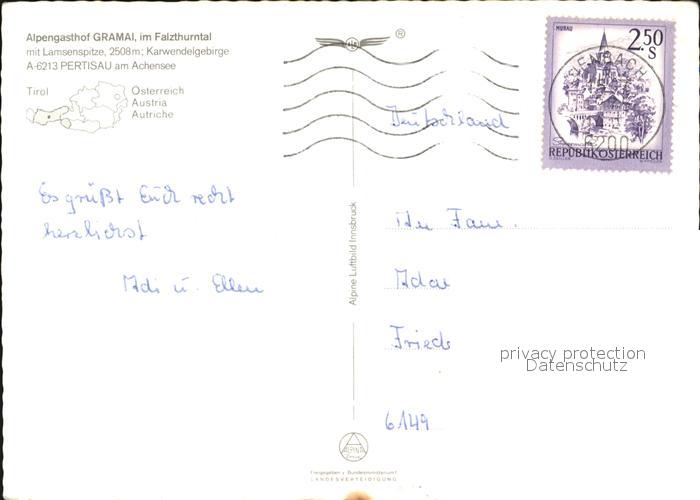 Alpengasthof GRAMAI, im Falzthurntal
mit Lamsenspitze, 2508m; Karwendelgebirge
A-6213 PERTISAU am Achensee
Tirol
Österreich
Austria
Autriche
®
MURAU
2.50
S
REPUBLIK ÖSTERREICH
JENBACH
6200
Deutschland
Es grüßt Euch recht
herzlichst
Adi u. Ellen
Alpine Luftbild Innsbruck
An Fam.
Adar
Fried
6149
privacy protection
Datenschutz
ALPINE
Freigegeben v. Bundesministerium f.
LANDESVERTEIDIGUNG